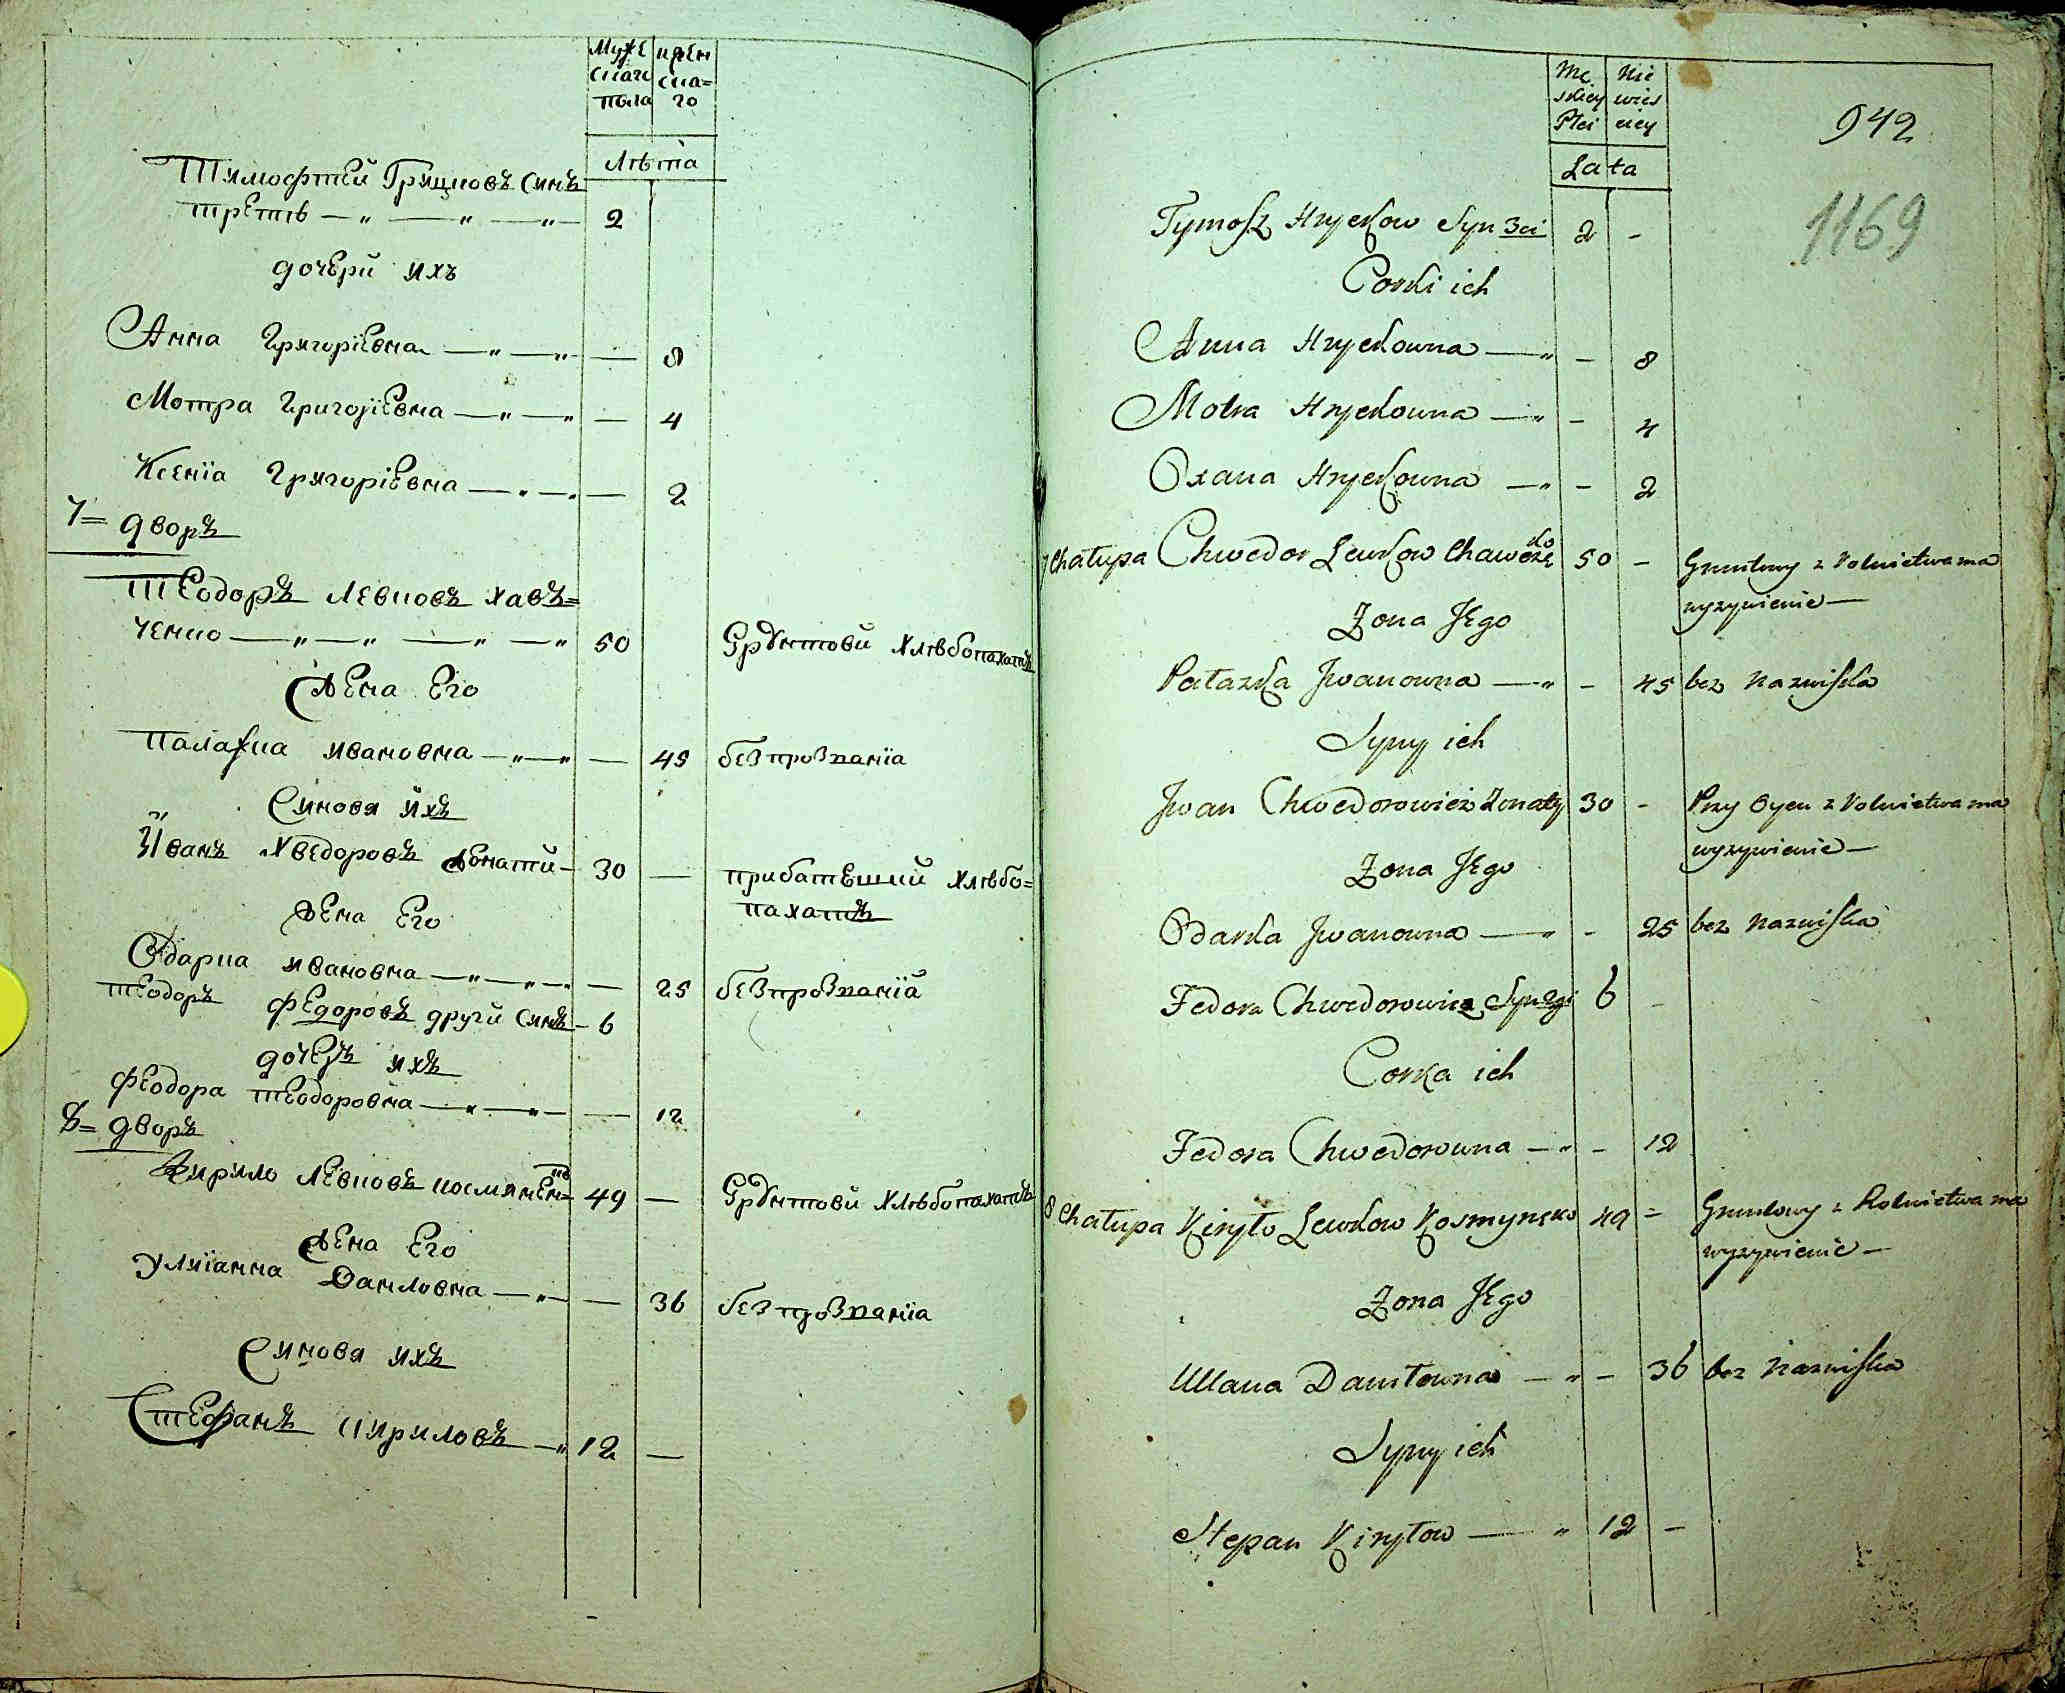 Муже женскаго
скаго
пола
Лѣта
Тимофтей Грицковъ синъ
третѣ — „ — „ — „ — 2
дочери ихъ
Анна Григоріевна — „ — „ — 8
Мотра Григоріевна — „ — „ — 4
Ксенїа Григоріевна — „ — „ — 2
7= дворъ
Теодоръ Левковъ хавъ=
ченко — „ — „ — „ — „ 50 Ґрунтови хлѣбопахатъ
жена Его
Палажка ивановна — „ — „ — 45 без прозванїа
Синовя ихъ
Иванъ Хведоровъ жонатий — 30 — при батешкий хлѣбо=
пахатъ
жена Его
Одарка ивановна — „ — „ — 25 без прозванїа
Теодоръ федоровъ други синъ — 6
дочеръ ихъ
феодора теодоровна — „ — „ — 12
8= дворъ
Кирило Левковъ косминенко 49 — Ґрунтови хлѣбопахатъ
жена Его
Улиїанна Данловна — „ — — 36 без прозванїа
Синовя ихъ
Стефанъ Кириловъ — „ 12 —
Mę Nie
skiey wies
Płci ciey
Lata
942
1169
Tymosz Hryckow Syn 3ci 2 -
Corki ich
Anna Hryckowna — „ - 8
Motra Hryckowna — „ - 4
Oxana Hryckowna — „ - 2
7 Chałupa Chwedor Lewkow Chawczęko 50 - Gruntowy z Rolnictwa ma
wyzywienie —
Zona Jego
Pałazka Jwanowna — „ - 45 bez nazwiska
Syny ich
Jwan Chwedorowicz Zonaty 30 - Przy Oycu z Rolnictwa ma
wyzywienie —
Zona Jego
Odarka Jwanowna — „ - 25 bez nazwiska
Fedora Chwedorowicz Syn 2gi 6 -
Corka ich
Fedora Chwedorowna — „ - 12
8 Chałupa Kiryło Lewkow Kosmynęko 49 = Gruntowy z Rolnictwa ma
wyzywienie —
Zona Jego
Ullana Daniłowna — „ - 36 bez nazwiska
Syny ich
Stepan Kiryłow — „ 12 -